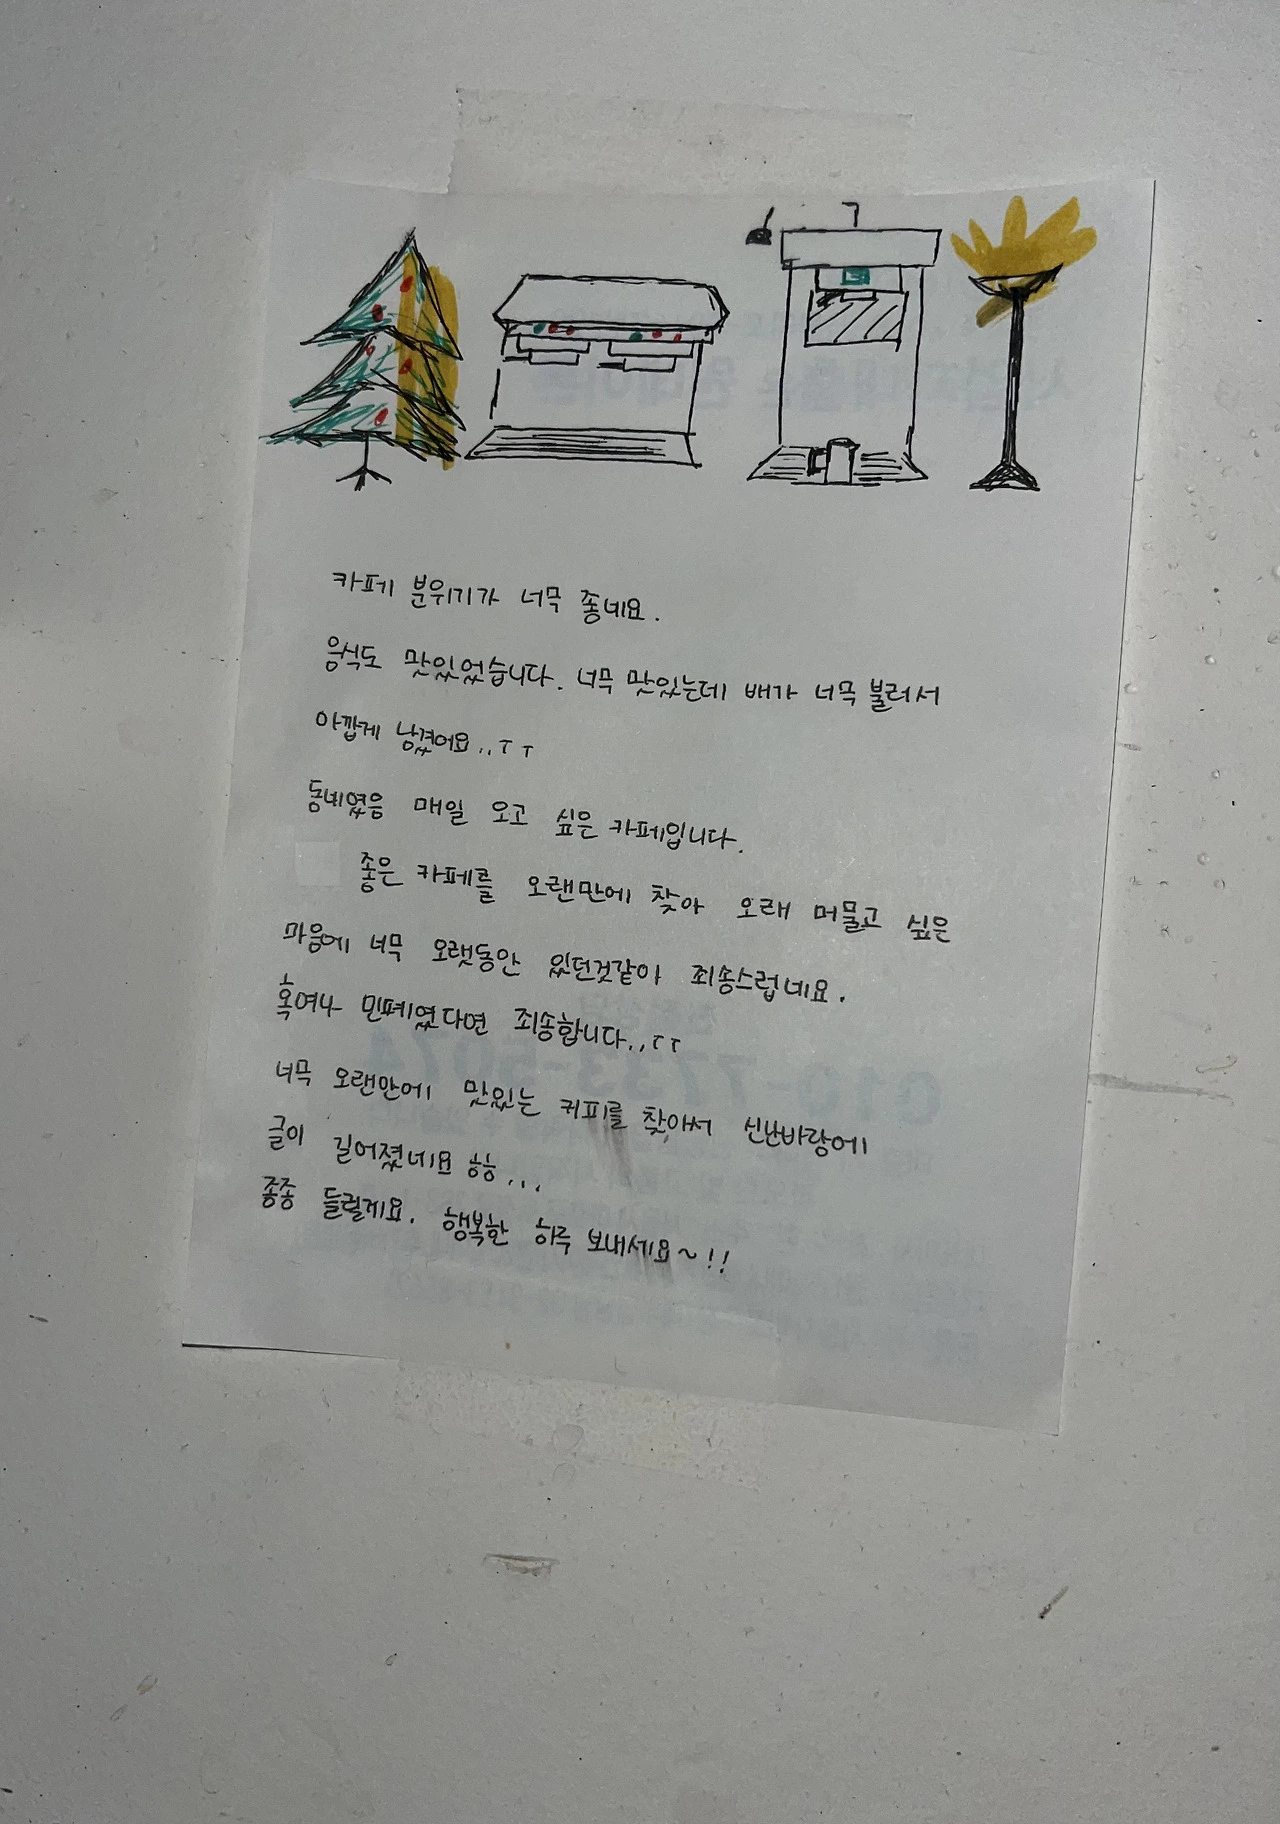 카페 분위기가 너무 좋네요.
음식도 맛있었습니다. 너무 맛있는데 배가 너무 불러서
아깝게 남겼어요..ㅜㅜ
동네였음 매일 오고 싶은 카페입니다.
좋은 카페를 오랜만에 찾아 오래 머물고 싶은
마음에 너무 오랫동안 있던것같아 죄송스럽네요.
혹여나 민폐였다면 죄송합니다..ㅜㅜ
너무 오랜만에 맛있는 커피를 찾아서 신난바람에
글이 길어졌네요 하하...
종종 들릴게요. 행복한 하루 보내세요~!!